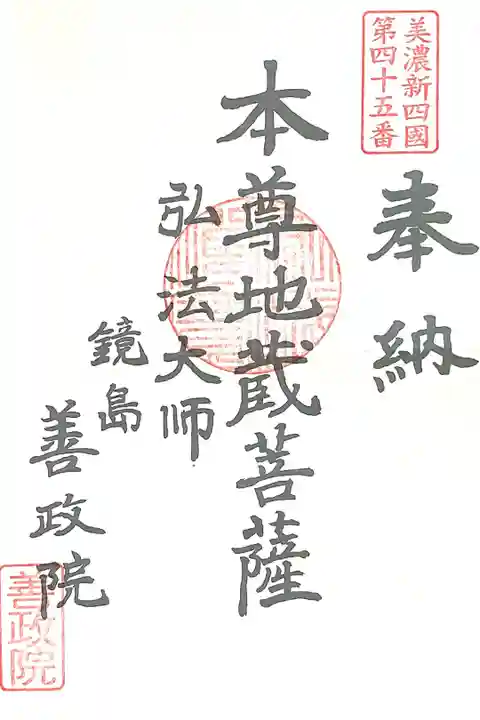 美濃新四國
第四十五番
奉納
本尊地蔵菩薩
弘法大师
鏡島
善政院
善政院